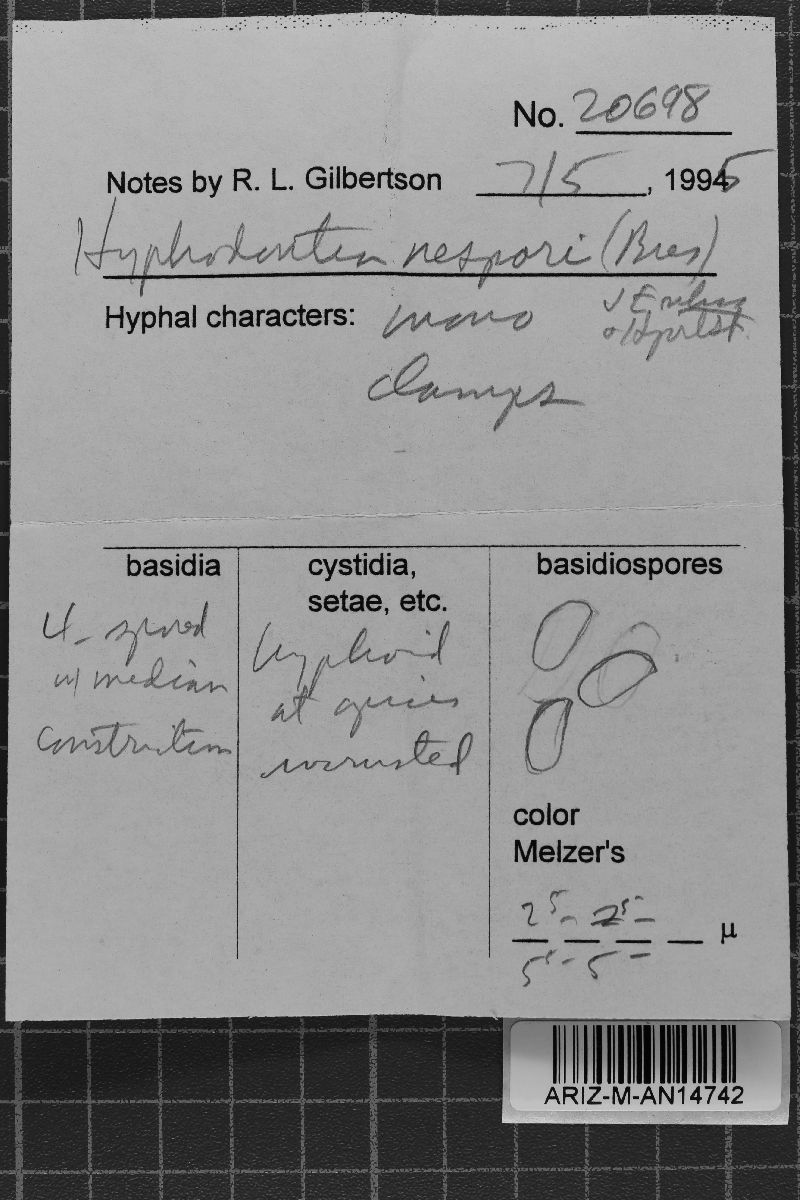 No. 20698
Notes by R. L. Gilbertson 7/5, 1995
Hyphodontia nespori (Bres)
Hyphal characters: mono
clamps
basidia cystidia, setae, etc. basidiospores
4-spored w/ median constriction
hyphoid at apices incrusted
color
Melzer's
μ
ARIZ-M-AN14742